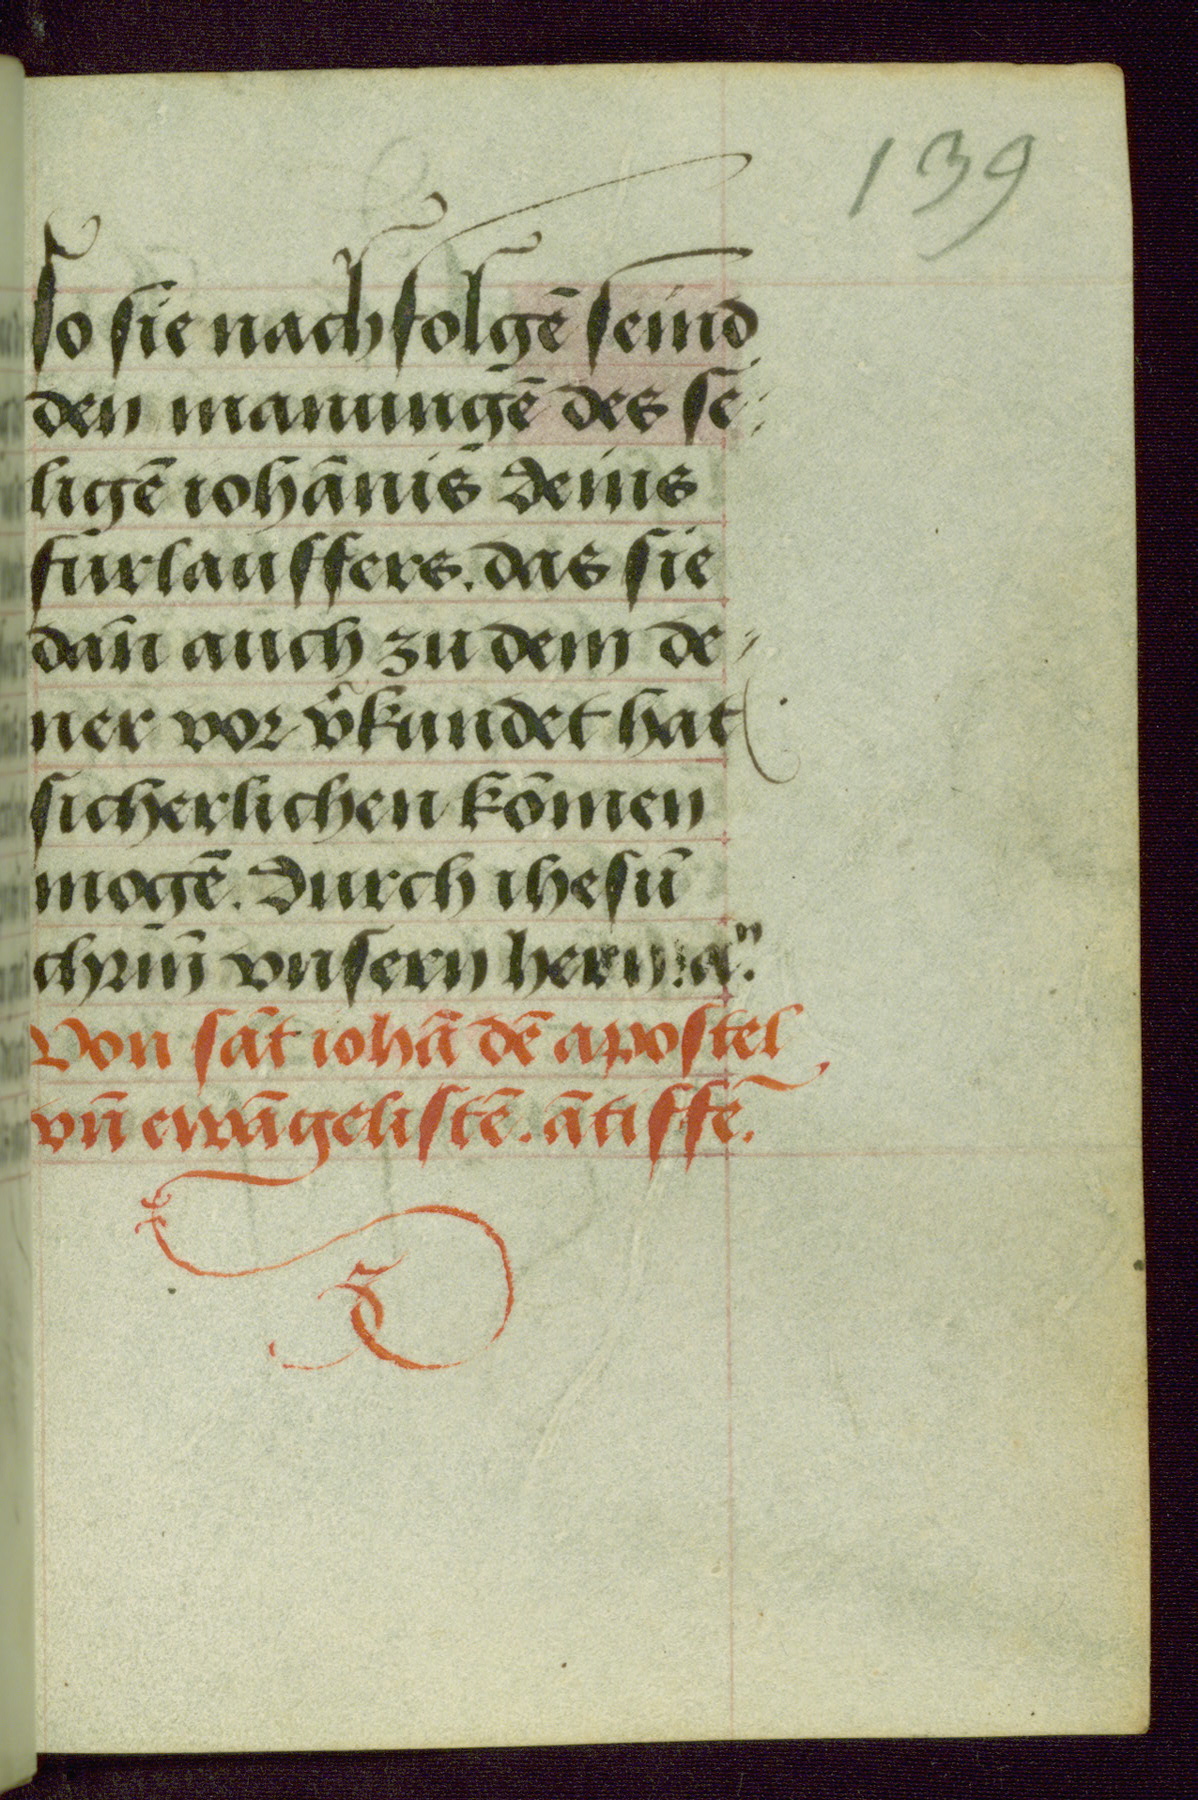 139
so sie nachfolgē seind
den manungē des se-
ligē iohānis deins
fürlauffers. das sie
dan̄ auch zu dem de-
ner vor v̄kundet hat
sicherlichen kōmen
mogē. Durch ihesū
chr̄m̄ vnsern hern: a".
Von sāt iohā dē apostel
vn̄ ewāgelistē. ātiffē.